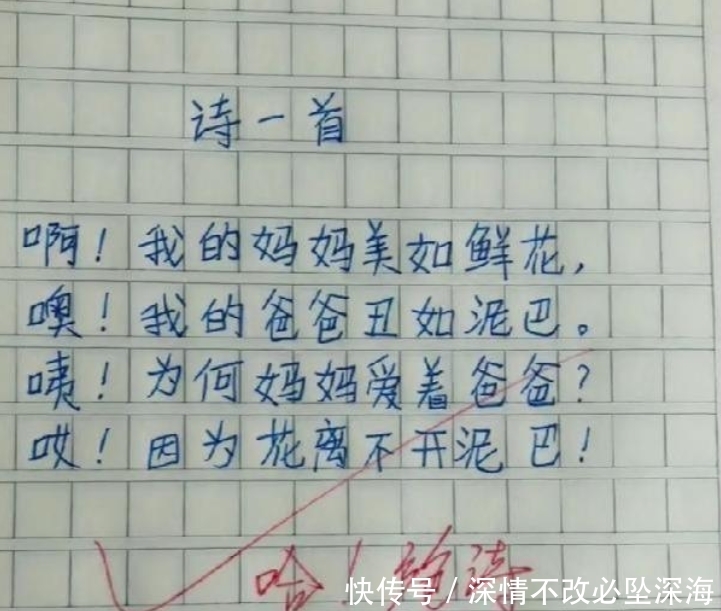 诗一首
啊！我的妈妈美如鲜花，
噢！我的爸爸丑如泥巴。
咦！为何妈妈爱着爸爸？
哎！因为花离不开泥巴！
哈！
快传号 / 深情不改必坠深海